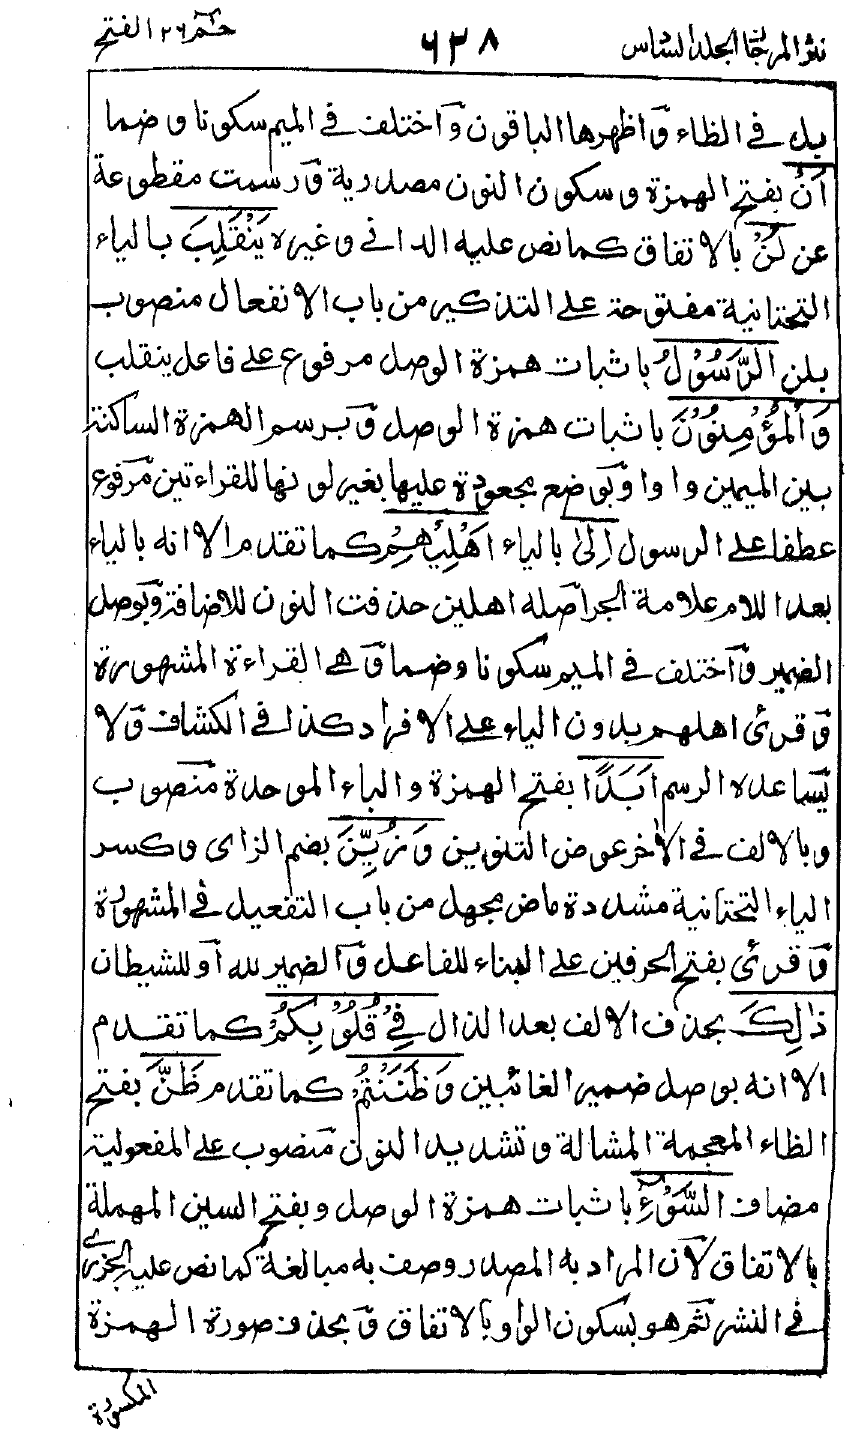 نثر المرجان الجلد السادس ٦٣٨ حٰمٓ ٢٦ الفتح
بل في الظاء وَاظهرها الباقون وَاختلف في الميم سكونا و ضما
اَنْ بفتح الهمزة و سكون النون مصدرية وَرسمت مقطوعة
عن لَنْ بالاتفاق كما نص عليه الداني و غيره يَنْقَلِبَ بالياء
التحتانية مفتوحة على التذكير من باب الانفعال منصوب
بلن الرَّسُوْلُ باثبات همزة الوصل مرفوع على فاعل ينقلب
وَالْمُؤْمِنُوْنَ باثبات همزة الوصل وَبرسم الهمزة الساكنة
بين الميمين واوا وَبوضع مجعودة عليها بغير لونها للقراءتين مَرفوع
عطفا على الرسول اِلٰى بالياء اَهْلِيْهِمْ كما تقدم الا انه بالياء
بعد اللام علامة الجر اَصله اهلين حذفت النون للاضافة وَبوصل
الضمير وَاختلف في الميم سكونا و ضما وَهي القراءة المشهورة
وَقرئ اهلهم بدون الياء على الافراد كذا في الكشاف وَلا
يَساعده الرسم اَبَدًا بفتح الهمزة و الباء الموحدة مَنصوب
و بالالف في الاٰخر عوض التنوين وَزُيِّنَ بضم الزاى و كسر
الياء التحتانية مشددة ماض مجهل من باب التفعيل في المشهورة
وَقرئ بفتح الحرفين على البناء للفاعل وَالضمير لله اَو للشيطان
ذٰلِكَ بحذف الالف بعد الذال فِيْ قُلُوْبِكُمْ كما تقدم
الا انه بوصل ضمير الغائبين وَظَنَنْتُمْ كما تقدم ظَنَّ بفتح
الظاء المعجمة المشالة و تشديد النون مَنصوب على المفعولية
مضاف السَّوْءِ باثبات همزة الوصل و بفتح السين المهملة
بالاتفاق لاَن المراد به المصدر وصف به مبالغة كما نص عليه الجزرى
في النشر ثم هو بسكون الواو بالاتفاق وَبحذف صورة الهمزة
المكسورة